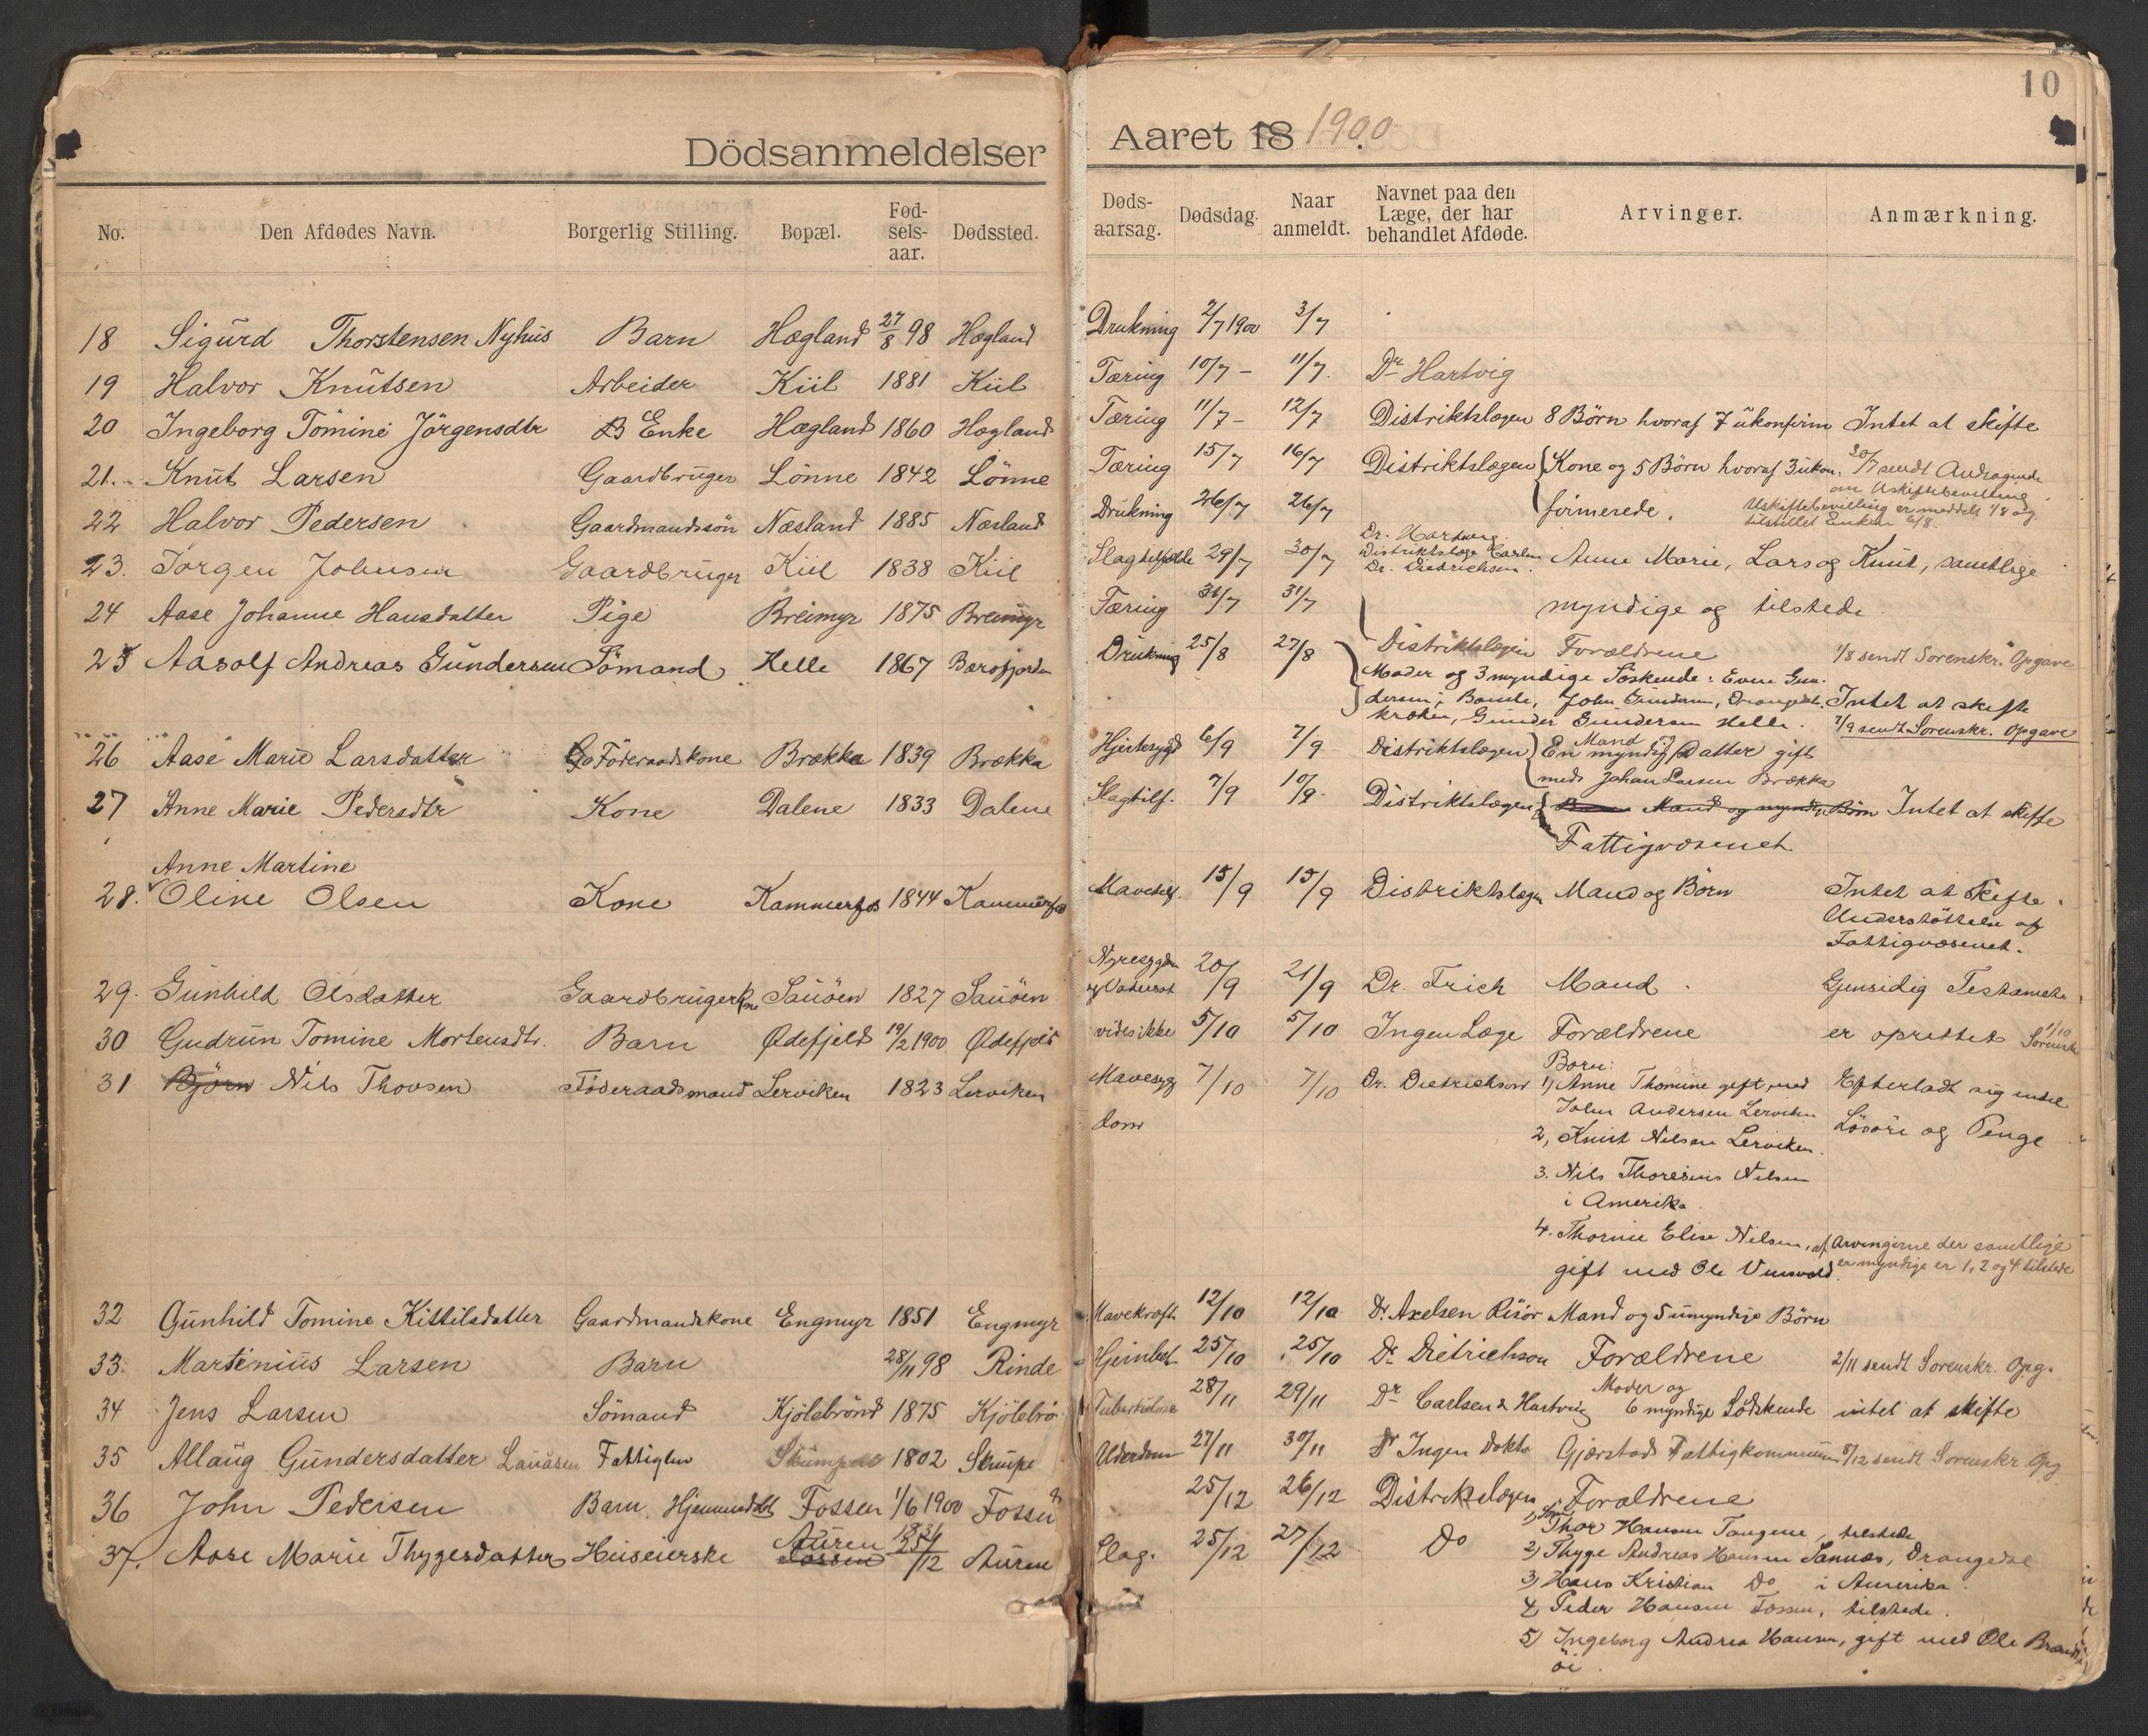 10
Dödsanmeldelser Aaret 18 1900.
No. Den Afdødes Navn. Borgerlig Stilling. Bopæl. Fød-sels-aar. Dødssted. Døds-aarsag. Dødsdag. Naar anmeldt. Navnet paa den Læge, der har behandlet Afdøde. Arvinger. Anmærkning.
18 Sigurd Thorstensen Nyhus Barn Hægland 27/8 98 Hægland Drukning 2/7 1900 3/7
19 Halvor Knutsen Arbeider Kiil 1881 Kiil Tæring 10/7 - 11/7. Dr Hartvig
20 Ingeborg Tömine Jörgensdtr Enke Hægland 1860 Hægland Tæring 11/7 - 12/7 Distriktslægen 8 Börn hvoraf 7 ukonfirm Intet at skifte
21. Knut Larsen Gaardbruger Lönne 1842 Lönne Tæring 15/7 16/7 Distriktslægen Kone og 5 Börn hvoraf 3 ukon- 20/7 sendt Andragende
om Uskiftebevilling
22 Halvor Pedersen Gaardmandssön Næsland 1885 Næsland Drukning 26/7 26/7 firmerede. Uskiftebevilling er meddelt 1/8 og
tilstillet Enken 6/8.
23. Jorgen Johnsen Gaardbruger Kiil 1838 Kiil Slagtilfælde 29/7 30/7 Dr. Hartvig
Distriktslæge Carlsen
Dr. Dietrichson. Anne Marie, Lars og Knut, samtlige
24 Aase Johanne Hansdatter Pige Breimyr 1875 Breimyr Tæring 31/7 31/7 myndige og tilstede.
25 Aasolf Andreas Gundersen Sömand Helle 1867 Barosfjorden Drukning 25/8 27/8 Distriktslægen Forældrene 1/8 sendt Sorenskr. Opgave
Moder og 3 myndige Söskende: Even Gun-
dersen, Bamle, John Gundersen, Drangedal, Intet at skifte
Gunder Gundersen Helle. 7/9 sendt Sorenskr. Opgave
26 Aase Marie Larsdatter Föderaadskone Brækka 1839 Brækka Hjertesygd 6/9 7/9 Distriktslægen Mand og
En myndig Datter gift
med Johan Larsen Brækka
27 Anne Marie Pedersdtr Kone Dalene 1833 Dalene Slagtilf. 7/9 10/9. Distriktslægen Mand og myndige Börn Intet at skifte
Fattigvæsenet
Anne Martine
28. Oline Olsen Kone Kammerfos 1844 Kammerfos Mavetilf. 15/9 15/9 Distriktslægen Mand og Börn Intet at skifte.
Understöttelse af
Fattigvæsenet.
29. Gunhild Olsdatter Gaardbrugerkone Sauöen 1827 Sauöen Nyresygdom
og Vatersot 20/9 21/9 Dr. Frich Mand. Gjensidig Testamente
30 Gudrun Tomine Mortensdtr. Barn Ødefjeld 19/2 1900 Ødefjeld vides ikke 5/10 5/10 Ingen Læge Forældrene er oprettet 1/10 Sorenskr
31 Björn Nils Thovsen Föderaadsmand Lerviken 1823 Lerviken Mavesyg
dom 7/10 7/10 Dr. Dietrichson Born:
1) Anne Thomine gift med Efterladt sig endel
John Andersen Lerviken
2, Knut Nilsen Lerviken. Lösöre og Penge
3. Nils Thoresius Nilsen
i Amerika.
4. Thorine Elise Nilsen, af Arvingerne der samtlige
gift med Ole er myndige er 1, 2 og 4 tilstede
32 Gunhild Tomine Kittilsdatter Gaardmandskone Engmyr 1851 Engmyr Mavekræft 12/10 12/10 Dr. Axelsen Risör Mand og 5 umyndige Börn
33. Martinius Larsen Barn 28/11 98 Rinde 25/10 25/10 Dr Dietrichson Forældrene 2/11 sendt Sorenskr. Opg.
34 Jens Larsen Sömand Kjölebrönd 1875 Kjölebrö Tuberkulose 28/11 29/11 Dr Carlsen & Hartvig Moder og
6 myndige Södskende intet at skifte
35 Allaug Gundersdatter Lauåsen Fattiglem 1802 Skumpe Alderdom 27/11 30/11 Ingen Doktor Gjærstads Fattigkommune 8/12 sendt Sorenskr. Opg
36 John Pedersen Barn Hjemmedöbt Fossen 1/6 1900 Fossen 25/12 26/12 Distriktslægen Forældrene
37. Aase Marie Thygesdatter Huseierske Auren
Fossen 1834
/12 Auren Slag. 25/12 27/12 Do 1) Thor Hansen Tangene, tilstede
2) Thyge Andreas Hansen Sannes, Drangedal
3) Hans Kristian Do i Amerika.
4, Peder Hansen Fossen, tilstede.
5) Ingeborg Andrea Hansen, gift med Ole Brand
öi.